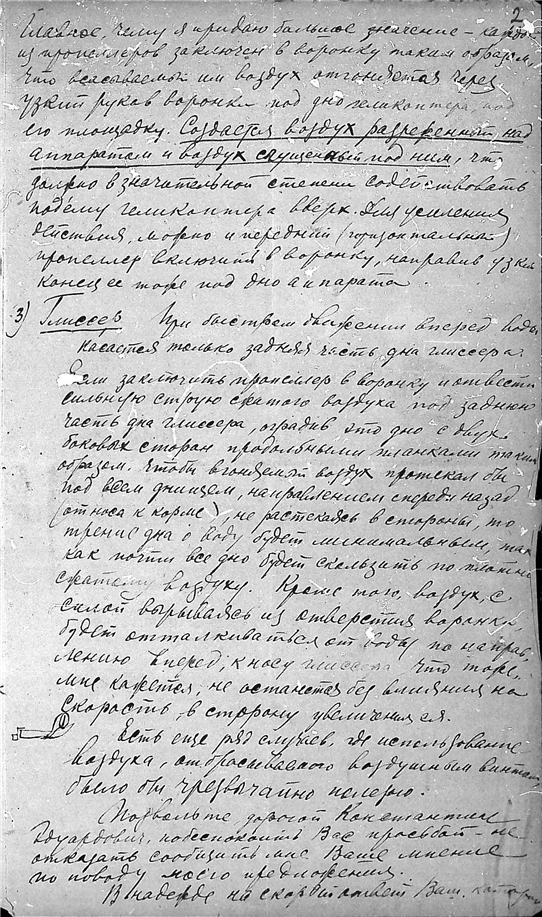 2
Главное, чему я придаю большое значение – каждый
из пропеллеров заключен в воронку таким образом,
что всасываемый им воздух отгоняется через
узкий рукав воронки под дно геликоптера, под
его площадку. Создается воздух разреженный над
аппаратом и воздух сгущенный под ним, что
должно в значительной степени содействовать
подъему геликоптера вверх. Для усиления
действия, можно и передний (горизонтальный)
пропеллер включить в воронку, направив узкий
конец ее тоже под дно аппарата.
3) Глиссер При быстром движении вперед воды
касается только задняя часть дна глиссера.
Если заключить пропеллер в воронку и отвести
сильную струю сжатого воздуха под заднюю
часть дна глиссера, оградив это дно с двух
боковых сторон продольными планками таким
образом, чтобы вгоняемый воздух протекал бы
под всем днищем, направлением спереди назад
(от носа к корме), не растекаясь в стороны, то
трение дна о воду будет минимальным, так
как почти все дно будет скользить по плотно
сжатому воздуху. Кроме того, воздух, с
силой вырываясь из отверстия воронки
будет отталкиваться от воды по направ-
лению вперед, к носу глиссера, что тоже,
мне кажется, не останется без влияния на
скорость, в сторону увеличения ея.
Есть еще ряд случаев, где использование
воздуха, отбрасываемого воздушным винтом,
было бы чрезвычайно полезно.
Позвольте, дорогой Константин
Эдуардович, побеспокоить Вас просьбой – не
отказать сообщить мне Ваше мнение
по поводу моего предложения.
В надежде на скорый ответ Ваш,